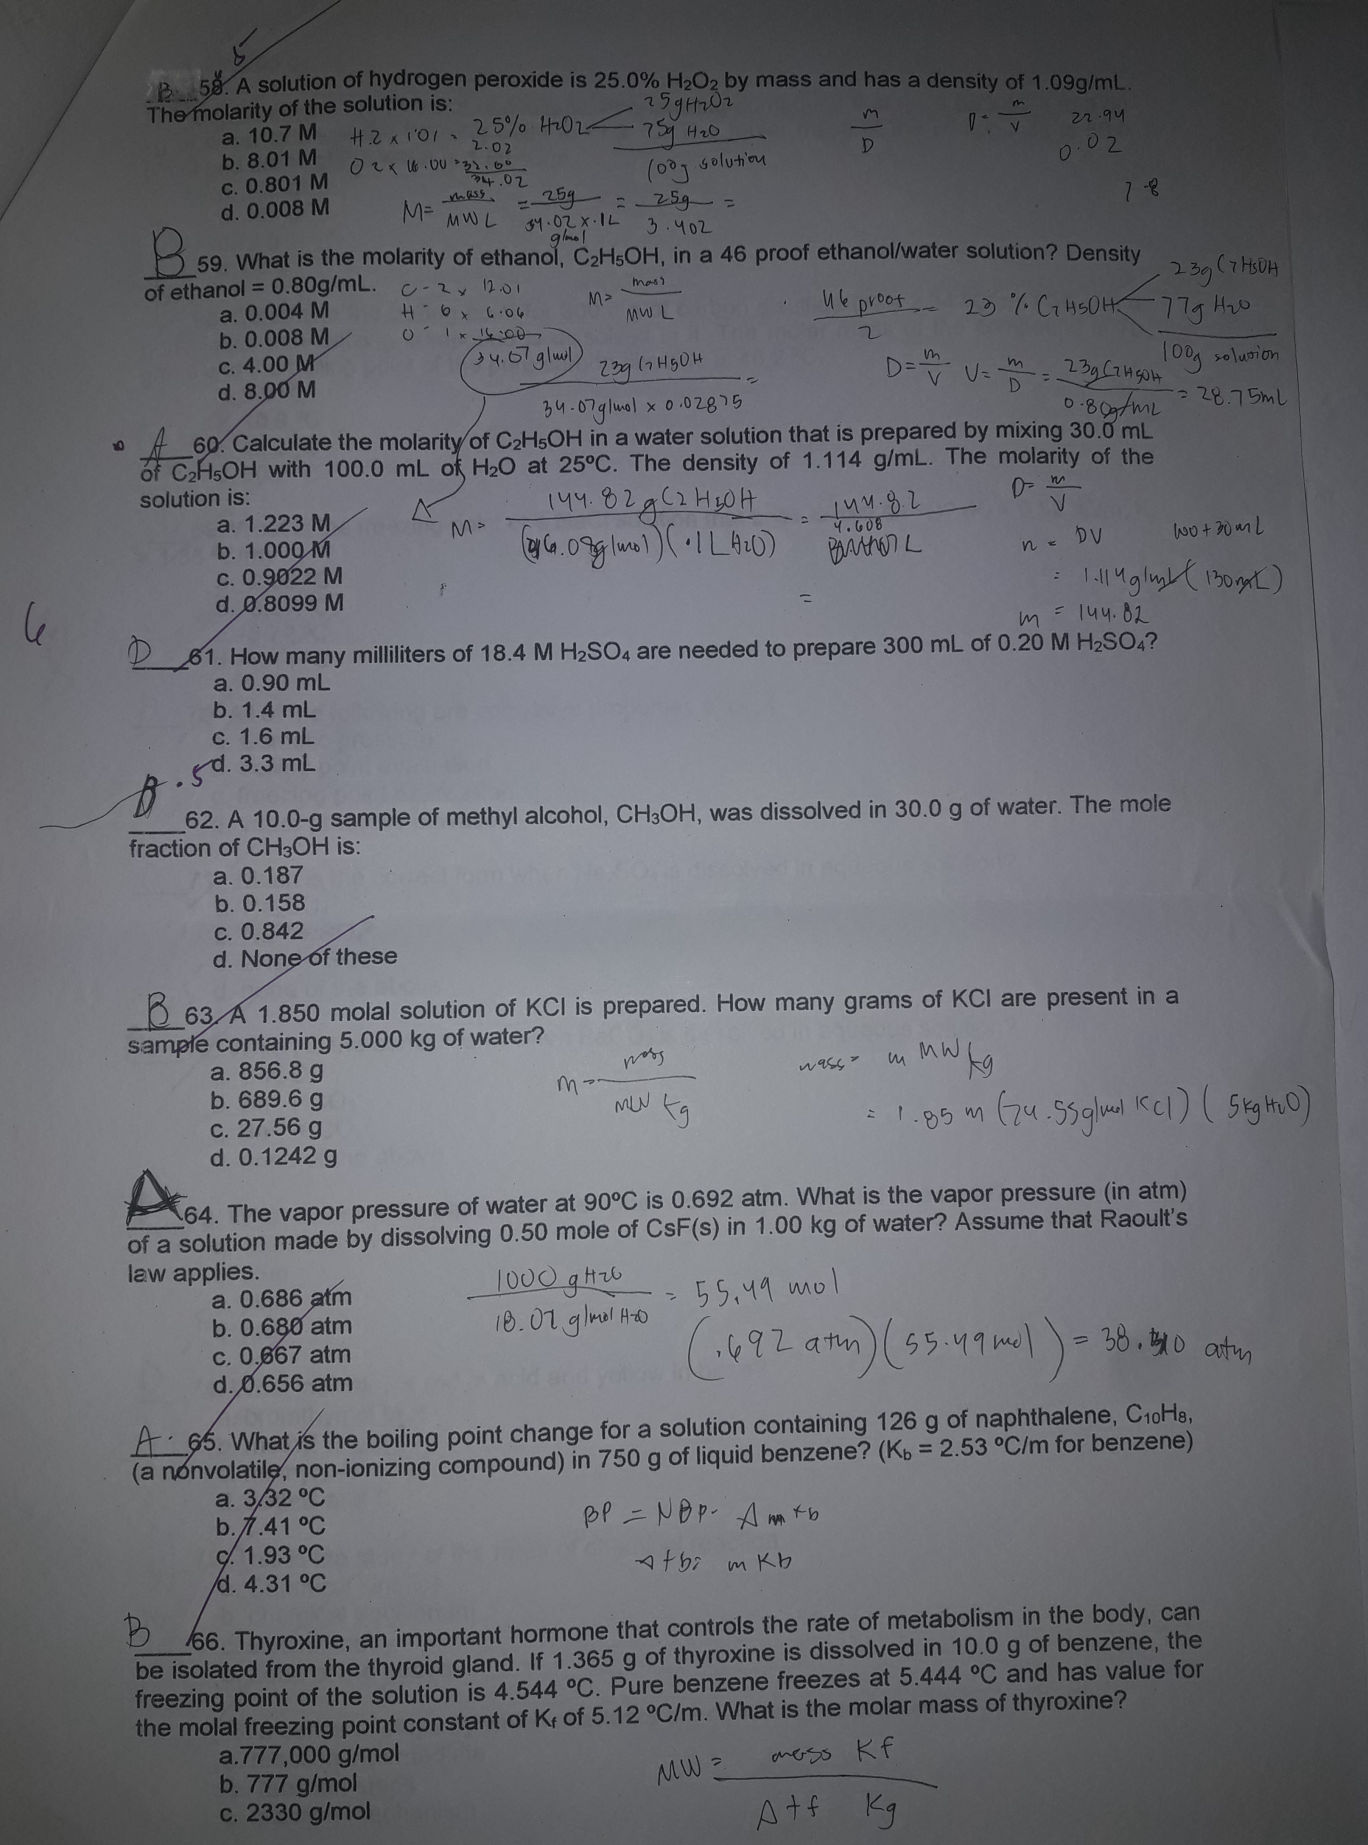 5
B 58. A solution of hydrogen peroxide is 25.0% H₂O₂ by mass and has a density of 1.09g/mL.
The molarity of the solution is:
a. 10.7 M
b. 8.01 M
c. 0.801 M
d. 0.008 M
H 2 x 1.01 = 2.02
O 2 x 16.00 = 32.00
34.02
25% H₂O₂
25g H₂O₂
75g H₂O
100g solution
m
D
D = m
V
22.94
0.02
7-8
M = mass = 25g = 25g =
MW L 34.02 x .1L 3.402
g/mol
B 59. What is the molarity of ethanol, C₂H₅OH, in a 46 proof ethanol/water solution? Density
of ethanol = 0.80g/mL.
a. 0.004 M
b. 0.008 M
c. 4.00 M
d. 8.00 M
C - 2 x 12.01
H - 6 x 6.06
O - 1 x 16.00
34.07 g/mol
M = mass
MW L
46 proof = 23 % C₂H5OH
2
23g C₂H5OH
77g H₂O
100g solution
23g C₂H5OH =
34.07g/mol x 0.02875
D = m
V
V = m = 23g C₂H5OH = 28.75mL
D 0.80g/mL
A 60. Calculate the molarity of C₂H₅OH in a water solution that is prepared by mixing 30.0 mL
of C₂H₅OH with 100.0 mL of H₂O at 25ºC. The density of 1.114 g/mL. The molarity of the
solution is:
a. 1.223 M
b. 1.000 M
c. 0.9022 M
d. 0.8099 M
M = 144.82g C₂H5OH = 144.82
(46.08g/mol) (.1L H₂O) 4.608
L
=
D = m
V
m = DV
100+30mL
= 1.114g/mL (130mL)
m = 144.82
6
D 61. How many milliliters of 18.4 M H₂SO₄ are needed to prepare 300 mL of 0.20 M H₂SO₄?
a. 0.90 mL
b. 1.4 mL
c. 1.6 mL
d. 3.3 mL
.5
B 62. A 10.0-g sample of methyl alcohol, CH₃OH, was dissolved in 30.0 g of water. The mole
fraction of CH₃OH is:
a. 0.187
b. 0.158
c. 0.842
d. None of these
B 63. A 1.850 molal solution of KCl is prepared. How many grams of KCl are present in a
sample containing 5.000 kg of water?
a. 856.8 g
b. 689.6 g
c. 27.56 g
d. 0.1242 g
m = mass
MW kg
mass = m MW kg
= 1.85 m (74.55g/mol KCl) (5kg H₂O)
A 64. The vapor pressure of water at 90ºC is 0.692 atm. What is the vapor pressure (in atm)
of a solution made by dissolving 0.50 mole of CsF(s) in 1.00 kg of water? Assume that Raoult's
law applies.
a. 0.686 atm
b. 0.680 atm
c. 0.667 atm
d. 0.656 atm
1000 g H₂O = 55.49 mol
18.02 g/mol H₂O
(.692 atm) (55.49 mol) = 38.40 atm
A 65. What is the boiling point change for a solution containing 126 g of naphthalene, C₁₀H₈,
(a nonvolatile, non-ionizing compound) in 750 g of liquid benzene? (Kb = 2.53 ºC/m for benzene)
a. 3.32 ºC
b. 7.41 ºC
c. 1.93 ºC
d. 4.31 ºC
BP = NBP - Δ tb
Δtb = m Kb
B 66. Thyroxine, an important hormone that controls the rate of metabolism in the body, can
be isolated from the thyroid gland. If 1.365 g of thyroxine is dissolved in 10.0 g of benzene, the
freezing point of the solution is 4.544 ºC. Pure benzene freezes at 5.444 ºC and has value for
the molal freezing point constant of Kf of 5.12 ºC/m. What is the molar mass of thyroxine?
a.777,000 g/mol
b. 777 g/mol
c. 2330 g/mol
MW = mass Kf
Δtf Kg